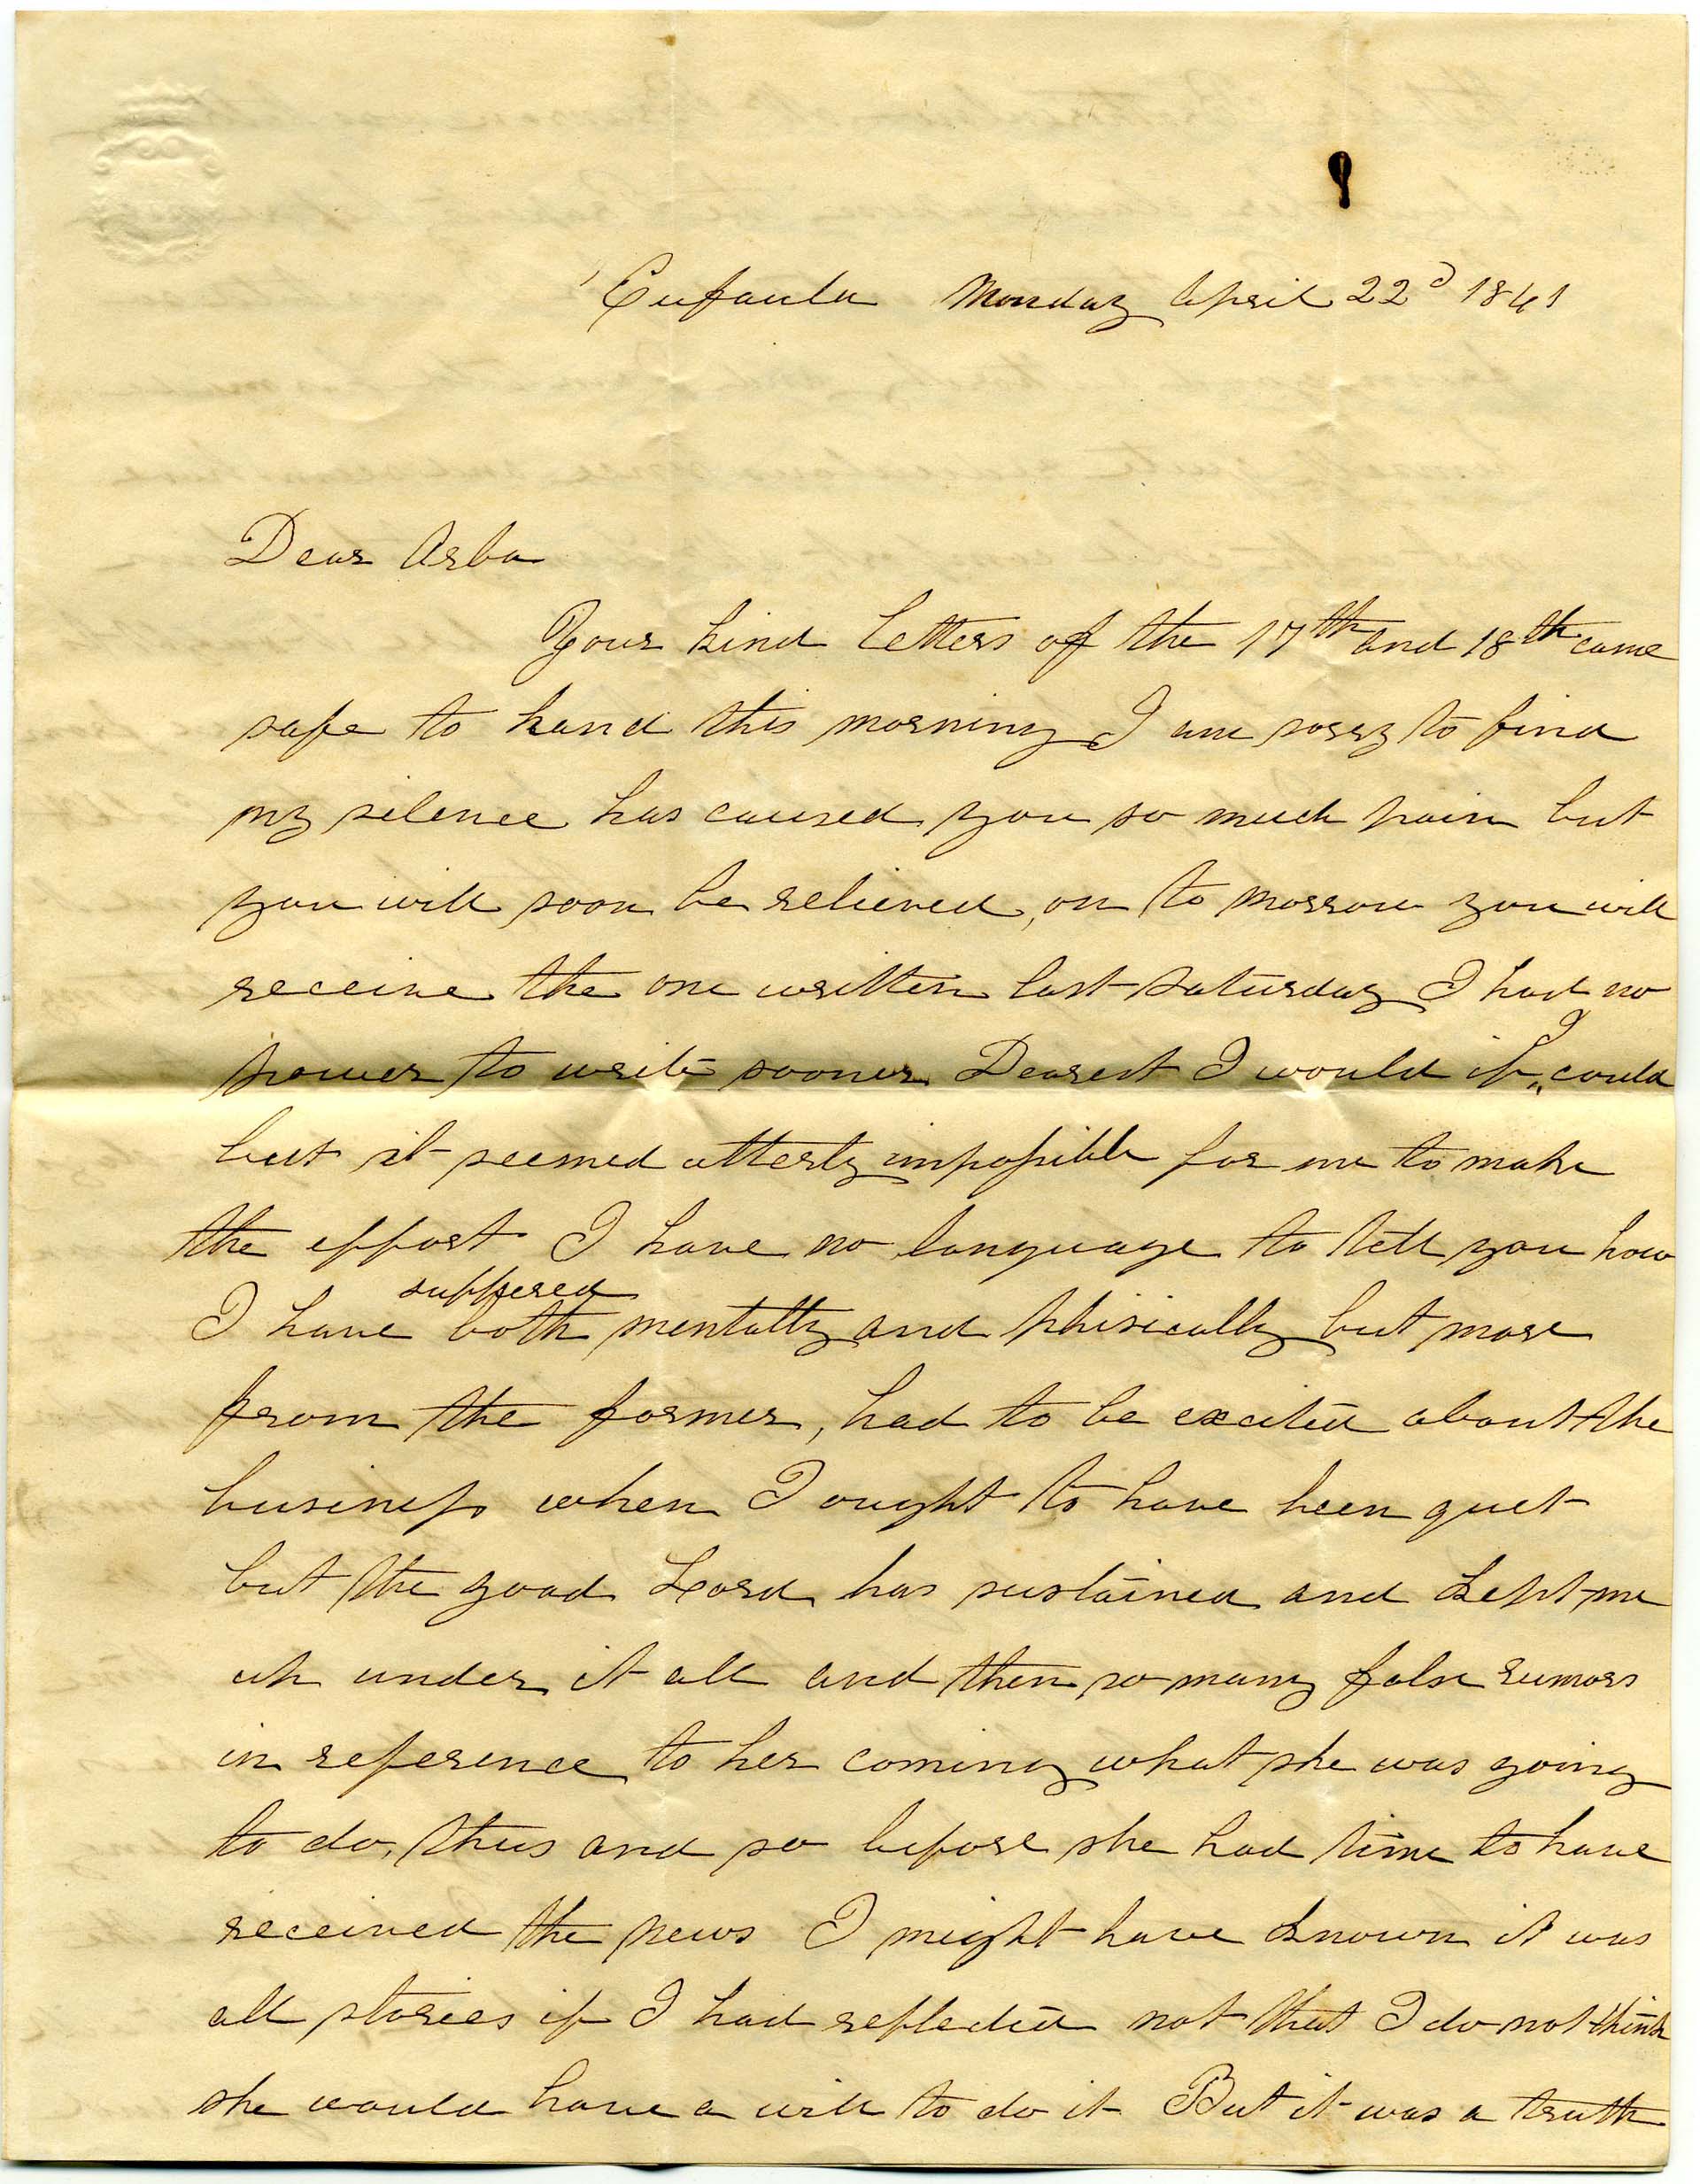 Eufaula Monday April 22d 1861
Dear Arba
Your kind letters of the 17th and 18th came
safe to hand this morning I am sorry to find
my silence has caused you so much pain but
you will soon be relieved, on to morrow you will
receive the one written last Saturday I had no
power to write sooner Dearest I would if I could
but it seemed utterly impossible for me to make
the effort I have no language to tell you how
suffered
I have both mentally and phisically but more
from the former, had to be excited about the
business when I ought to have been quet
but the good Lord has sustained and kept me
up under it all and then so many false rumors
in reference to her coming what she was going
to do, thus and so before she had time to have
received the news I might have known it was
all stories if I had reflected not that I do not think
she would have a will to do it But it was a truth